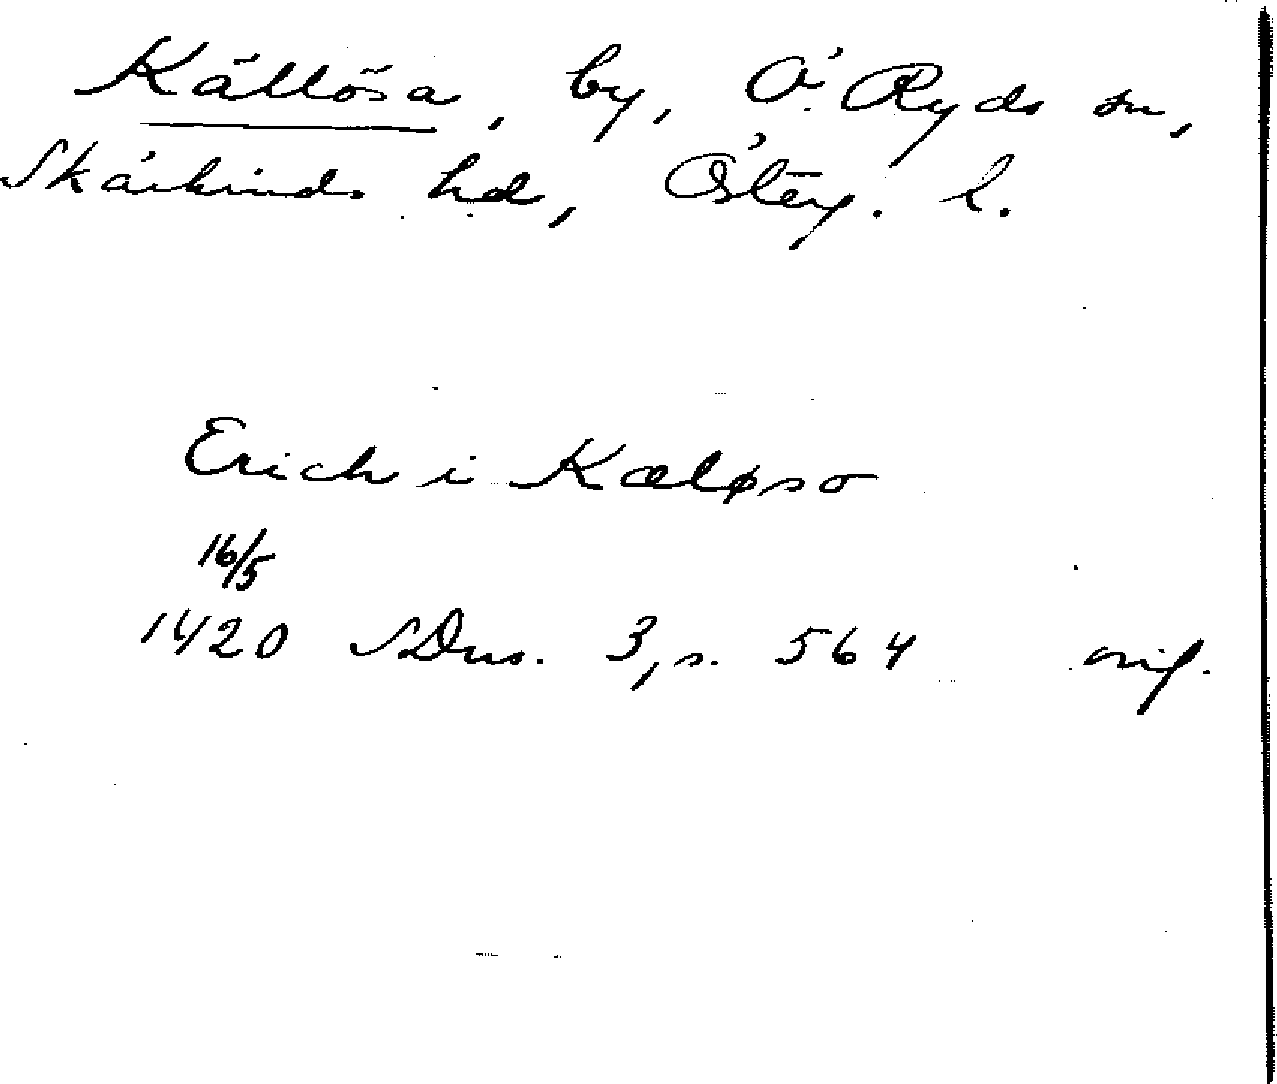 Källösa, by, Ö. Ryds sn,
Skärkinds hd, Österg. l.
Erich i Kæløso
16/5
1420 SDns. 3, s. 564 orig.